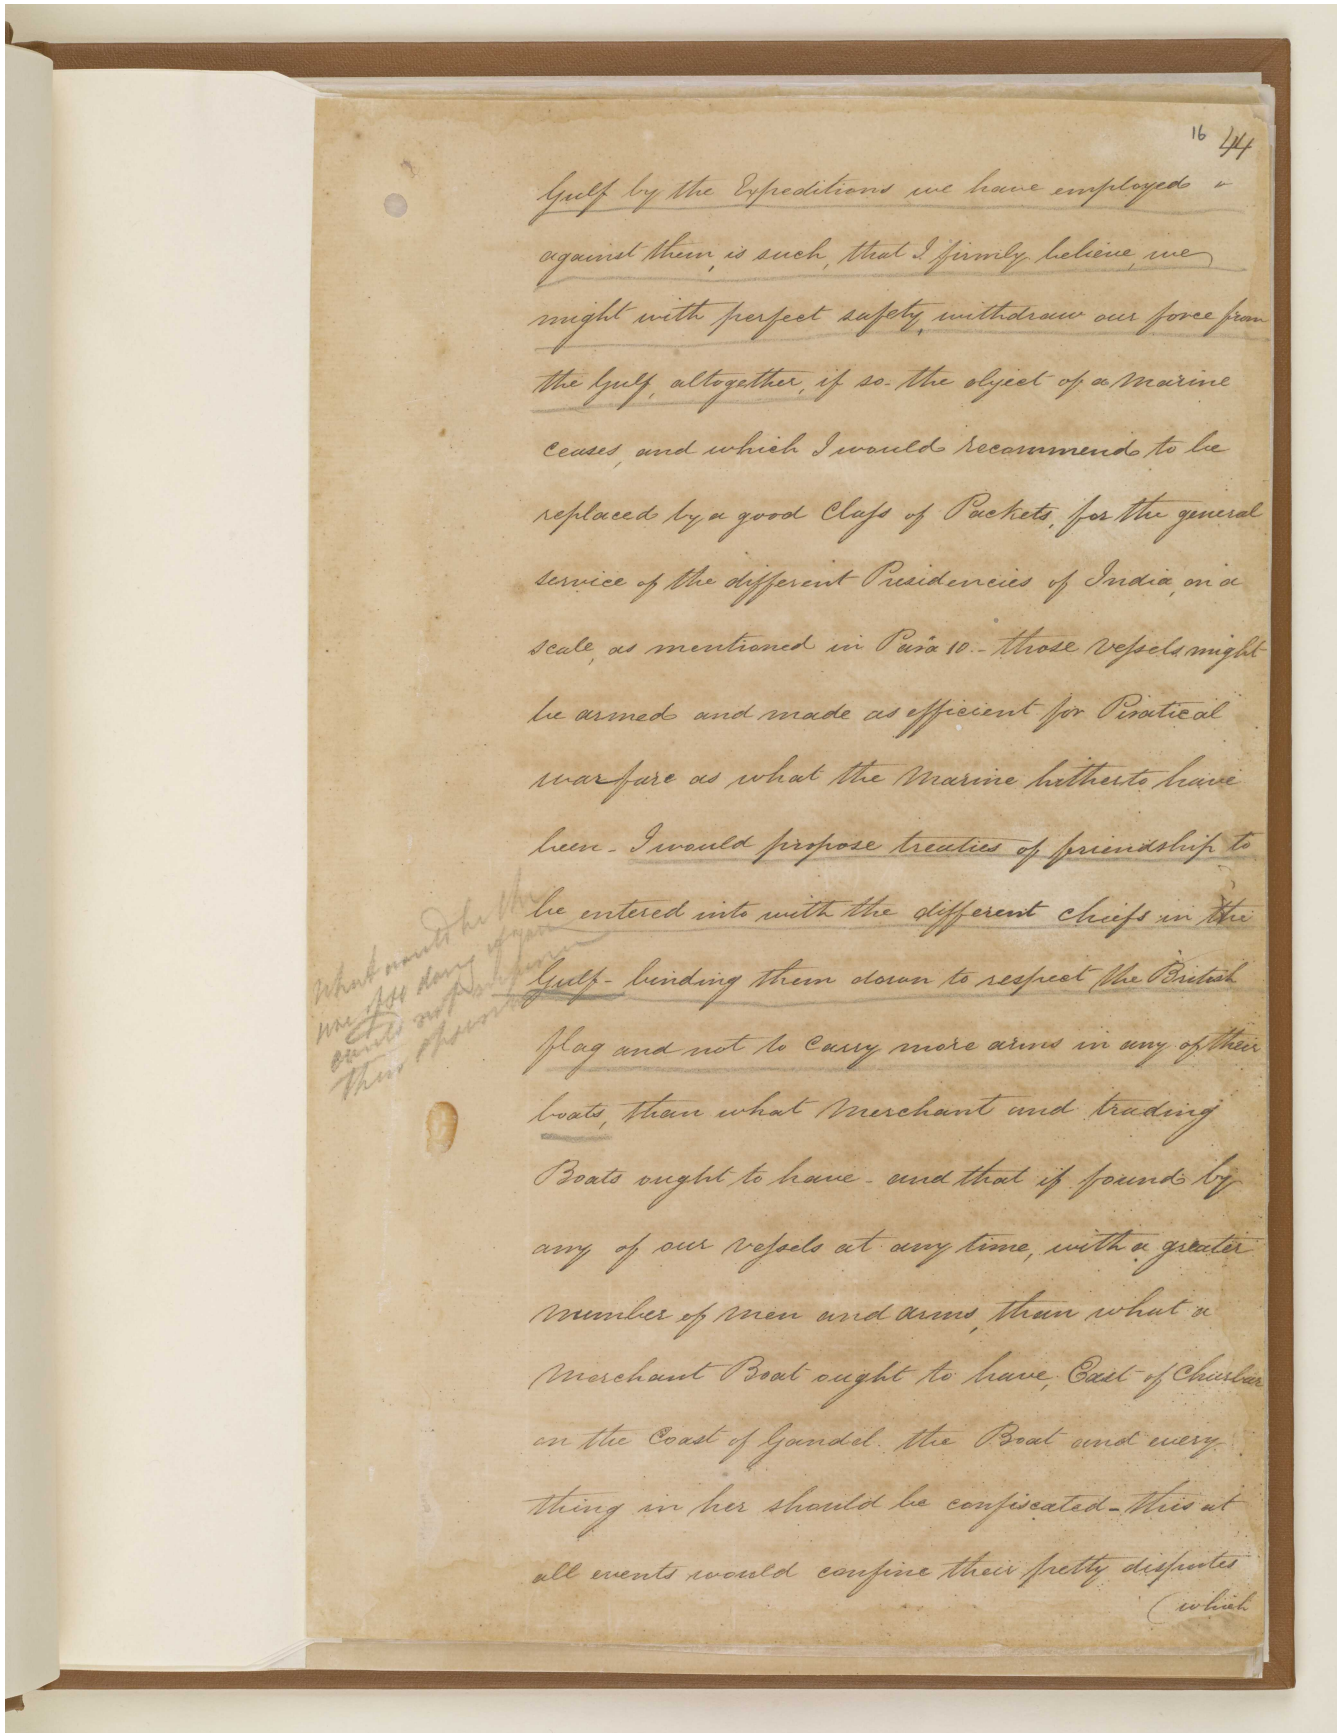 16 44
Gulf by the Expeditions we have employed
against them, is such, that I firmly believe, we
might with perfect safety, withdraw our force from
the Gulf, altogether, if so the object of a Marine
ceases, and which I would recommend to be
replaced by a good Class of Packets, for the general
service of the different Presidencies of India, on a
scale, as mentioned in Para 10. - those vessels might
be armed and made as efficient for Piratical
warfare as what the Marine hitherto have
been - I would propose treaties of friendship to
be entered into with the different chiefs in the
Gulf - binding them down to respect the British
flag and not to carry more arms in any of their
boats, than what Merchant and trading
Boats ought to have - and that if found by
any of our vessels at any time, with a greater
number of men and arms, than what a
Merchant Boat ought to have, East of Churbar
on the Coast of Gandel. the Boat and every
thing in her should be confiscated - this at
all events would confine their petty disputes
(which
What would be the
use of so doing if you
could not
their